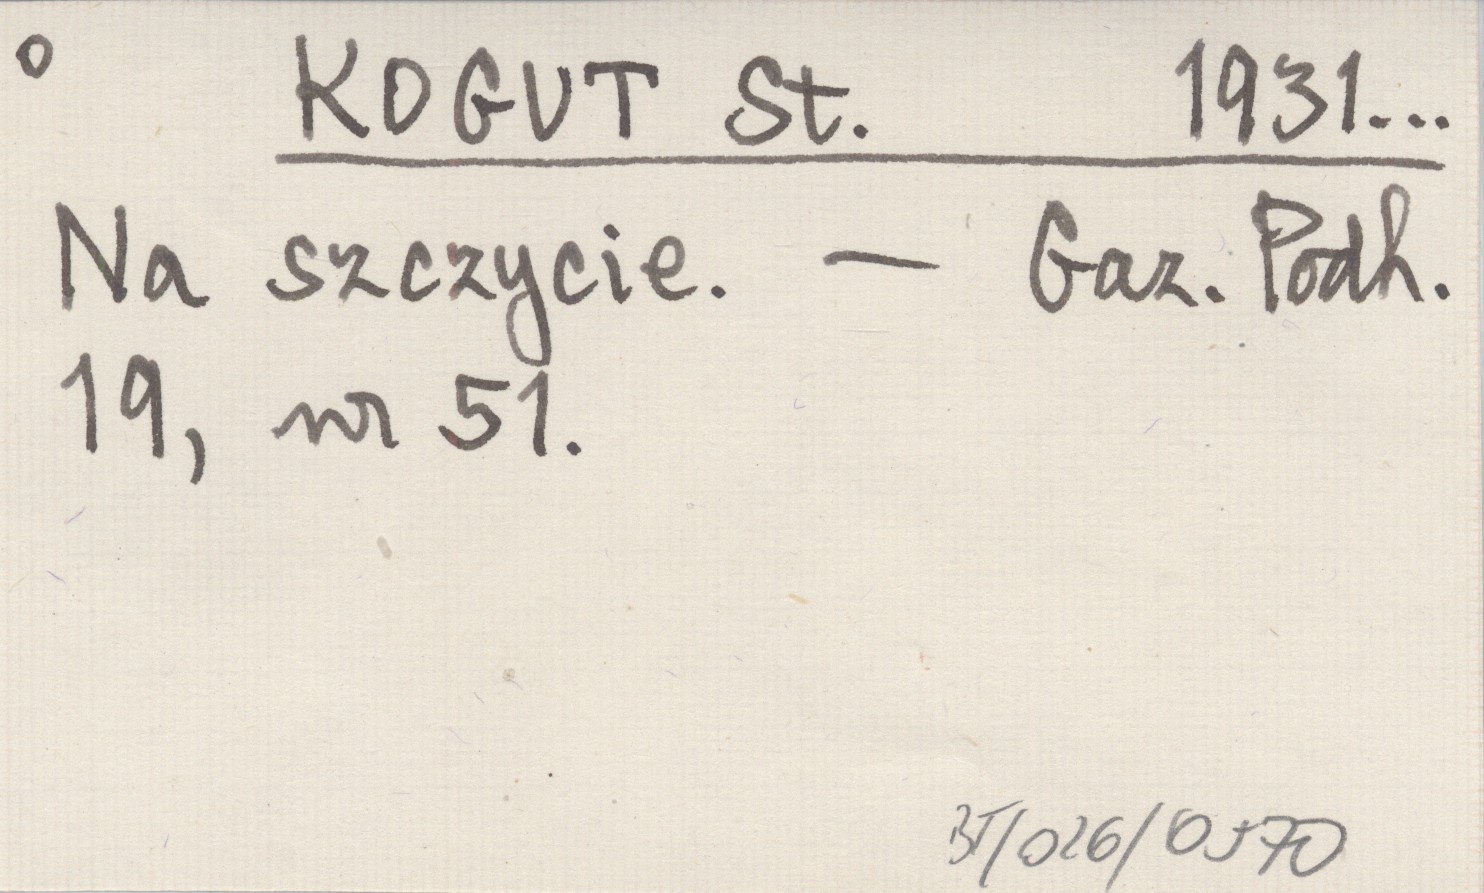 o KOGUT St. 1931...
Na szczycie. — Gaz. Podh.
19, nr 51.
BT/026/0570